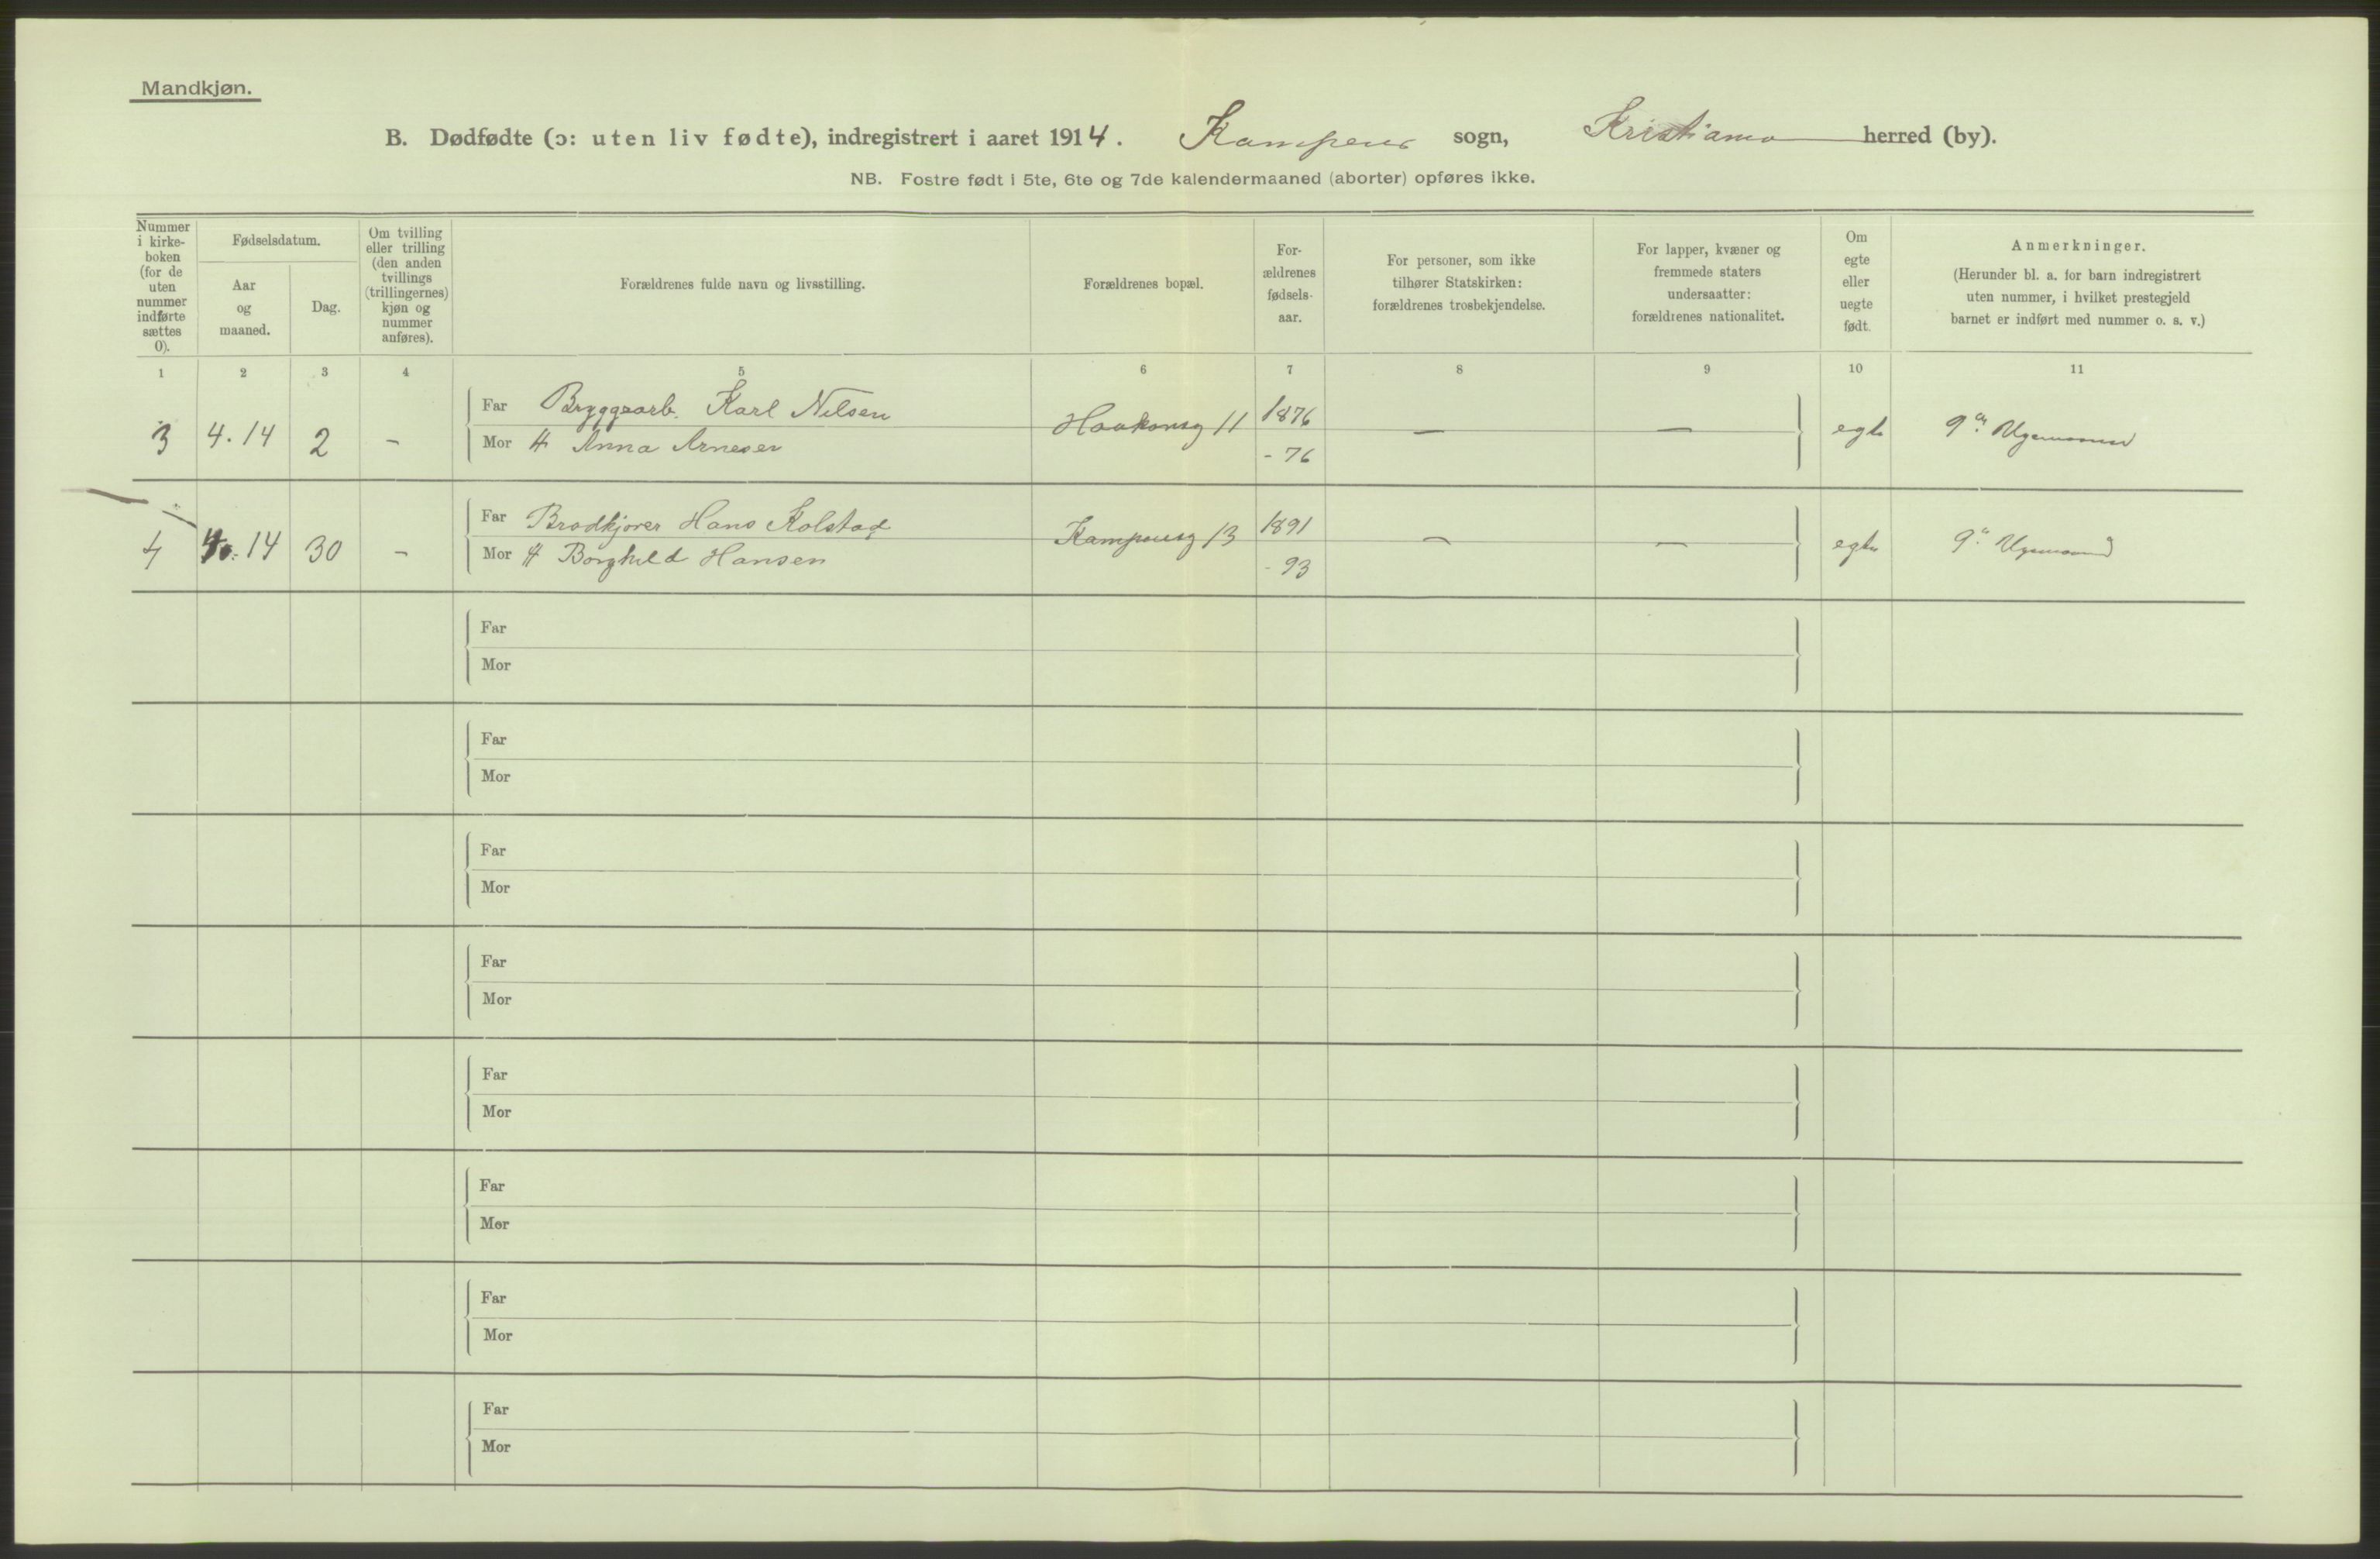 Mandkjøn.
B. Dødfødte (ɔ: uten liv fødte), indregistrert i aaret 1914. Kampens sogn, Kristiania herred (by).
NB. Fostre født i 5te, 6te og 7de kalendermaaned (aborter) opføres ikke.
Nummer
i kirke-
boken
(for de
uten
nummer
indførte
sættes
0).
Fødselsdatum.
Aar
og
maaned.
Dag.
Om tvilling
eller trilling
(den anden
tvillings
(trillingernes)
kjøn og
nummer
anføres).
Forældrenes fulde navn og livsstilling.
Forældrenes bopæl.
For-
ældrenes
fødsels-
aar.
For personer, som ikke
tilhører Statskirken:
forældrenes trosbekjendelse.
For lapper, kvæner og
fremmede staters
undersaatter:
forældrenes nationalitet.
Om
egte
eller
uegte
født.
Anmerkninger.
(Herunder bl. a. for barn indregistrert
uten nummer, i hvilket prestegjeld
barnet er indført med nummer o. s. v.)
1 2 3 4 5 6 7 8 9 10 11
Far Bryggearb. Karl Nilsen 1876
3 4.14 2 - Haakonsg 11 — — egte 9
Mor H Anna Arnesen - 76
Far Brødkjører Hans Kolstad 1891
4 14 30 - Kampensg 13 — — egte 9
Mor H Borghild Hansen - 93
Far
Mor
Far
Mor
Far
Mor
Far
Mor
Far
Mor
Far
Mor
Far
Mor
Far
Mor